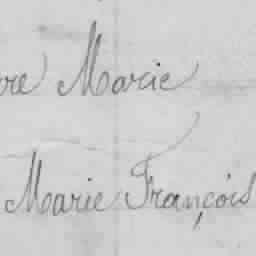 re Marie
Marie François